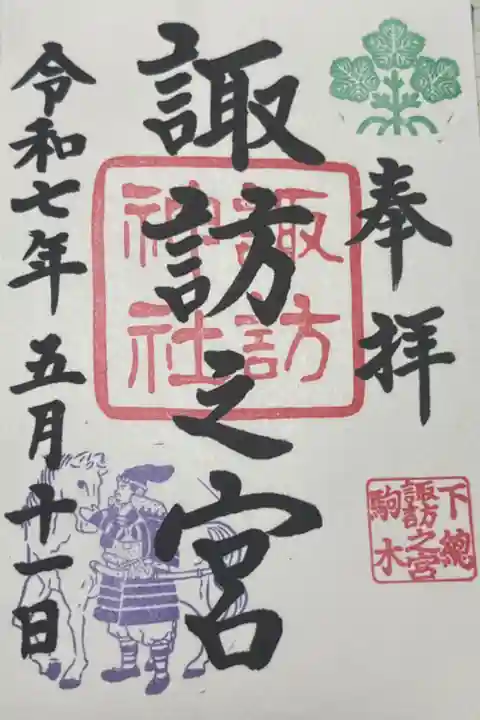 奉拝
下總
諏訪之宮
駒木
諏訪之宮
諏訪
神社
令和七年 五月十一日